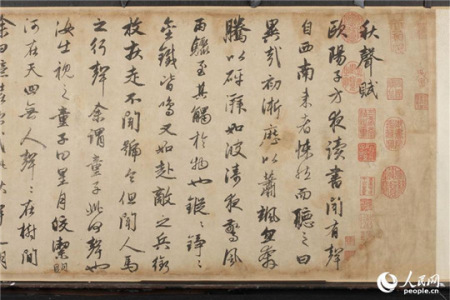 秋聲賦
歐陽子方夜讀書聞有聲
自西南来者悚然而聽之曰
異哉初淅瀝以蕭颯忽奔
騰以砰湃如波濤夜驚風
雨驟至其觸於物也鏦〻錚〻
金鐵皆鳴又如赴敵之兵銜
枚疾走不聞號令但聞人馬
之行聲余謂童子此何聲也
汝出視之童子曰星月皎潔明
河在天四無人聲〻在樹間
余曰噫嘻
人民网
people.cn